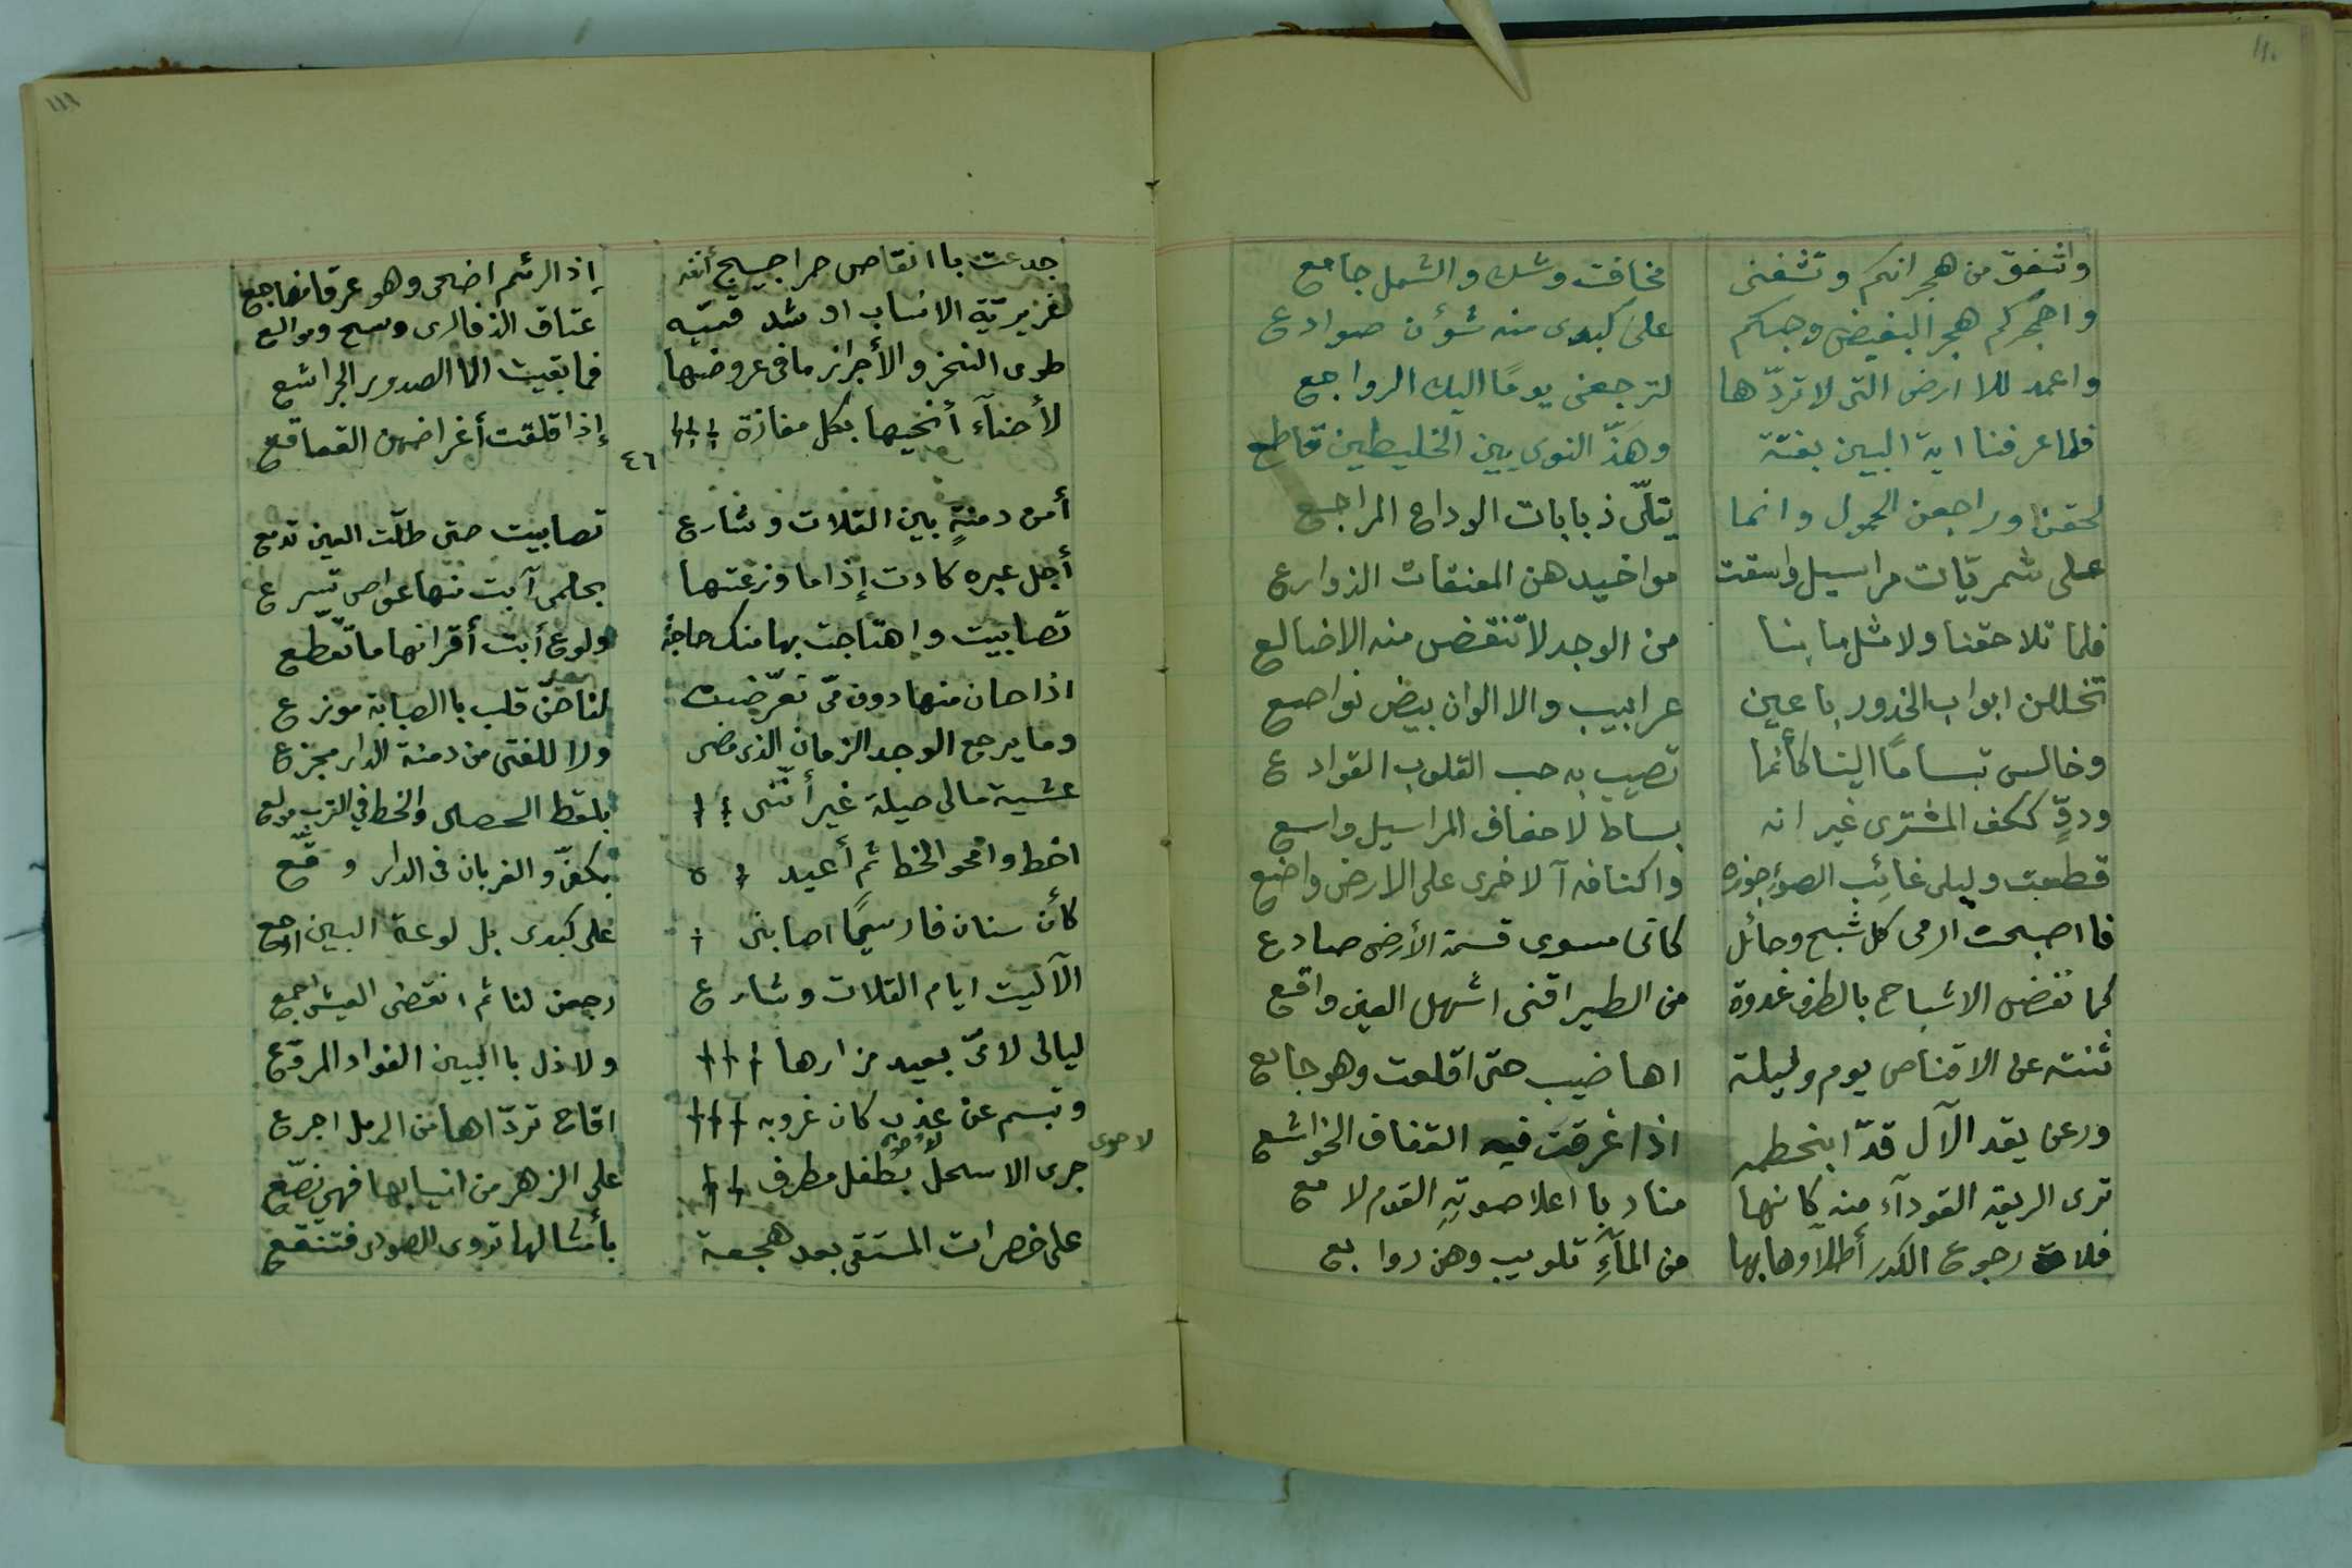 ١١٠
واشفق من هجرانكم وتشفنى مخافت وشك والشمل جامع
واهجركم هجر البغيض وحبكم على كبدى منه شؤن صوادع
واعمد للارض التى لا تردّها لترجعنى يومًا اليك الرواجع
فلما عرفنا اية البين بغتة وهذّ النوى بين الخليطين قاطع
لحقنا وراجعن الحمول وانما يتلّى ذبابات الوداع المراجع
على شمريات مراسيل واسقت مواخيدهن المعنقات الذوارع
فلما تلاحقنا ولا مثل ما بنا من الوجد لا تنقض منه الاضالع
تخللن ابواب الخدور باعين عرابيب والالوان بيض نواصع
وخالس تبسامًا الينا كأنما تصيب به حب القلوب القوادع
ودوٍّ ككف المشترى غير انه بساط لاخفاف المراسيل واسع
قطعت وليلى غائب الضوء جوزه واكنافه آلاخرى على الارض واضع
فااصبحت ارمى كل شبح وحائل كانى مسوى قسمة الأرض صادع
كما نفض الاشباح بالطرف غدوة من الطير اقنى اشهل العين واقع
ثنته عن الاقناص يوم وليلة اهاضيب حتى اقلعت وهو جائع
ورعن يقد الآل قدّا بخطمه اذا غرقت فيه القفاف الخواشع
ترى الريعة القودآء منه كانها مناد با اعلا صوتهِ القوم لامع
فلاة رجوع الكدر أطلاوها بها من المآءِ تلويب وهن روابع
١١١
جدعت باانقاص حراجيج أنفه إذا الرئم اضحى وهو عرقانهاجع
غريريّة الانساب او شدقميّه عتاق الذفارى وسج وموالع
طوى النحز والأجراز مافى عروضها فما بقيت الا الصدور الجراشع
لأحنآء ألحيها بكل مفازة إذا قلقت أغراضهن القعاقع
٤٦
أمن دمنةٍ بين القلات وشارع تصابيت حتى ظلّت العين تدمع
أجل عبره كادت إذا ما وزعتها بحلمى آبت منها عواص تسرع
تصابيت واهتاجت بها منك حاجة ولوع أبت أقرانها ما تقطّع
اذا حان منها دون مّى تعرّضت لنا حنّ قلب باالصبابة موزع
وما يرجع الوجد الزمان الذى مضى ولا للفتى من دمنة الدار مجزع
عشية مالى حيلة غير أنّنى بلقط الحصى والخط في الترب مولع
اخط وامحو الخط ثم أعيده بكفّى والغربان فى الدار وقّع
كأن سنان فارسيًا اصابنى على كبدى بل لوعة البين اوجع
الآ ليت ايام القلات وشارع رجعن لنا ثم انقضى العيش اجمع
ليالى لا مّى بعيد مزارها ولا ذل باالبين الفواد المروّع
وتبسم عن عذب كان غروبه اقاح تردّاها من الرمل اجرع
جرى الاسحل لاحوى بطفل مطرف على الزهر من انيابها فهى نصّع
لاحوى
على خصرات المستقى بعد هجعة بأمثالها تروى الصوادى فتنقع